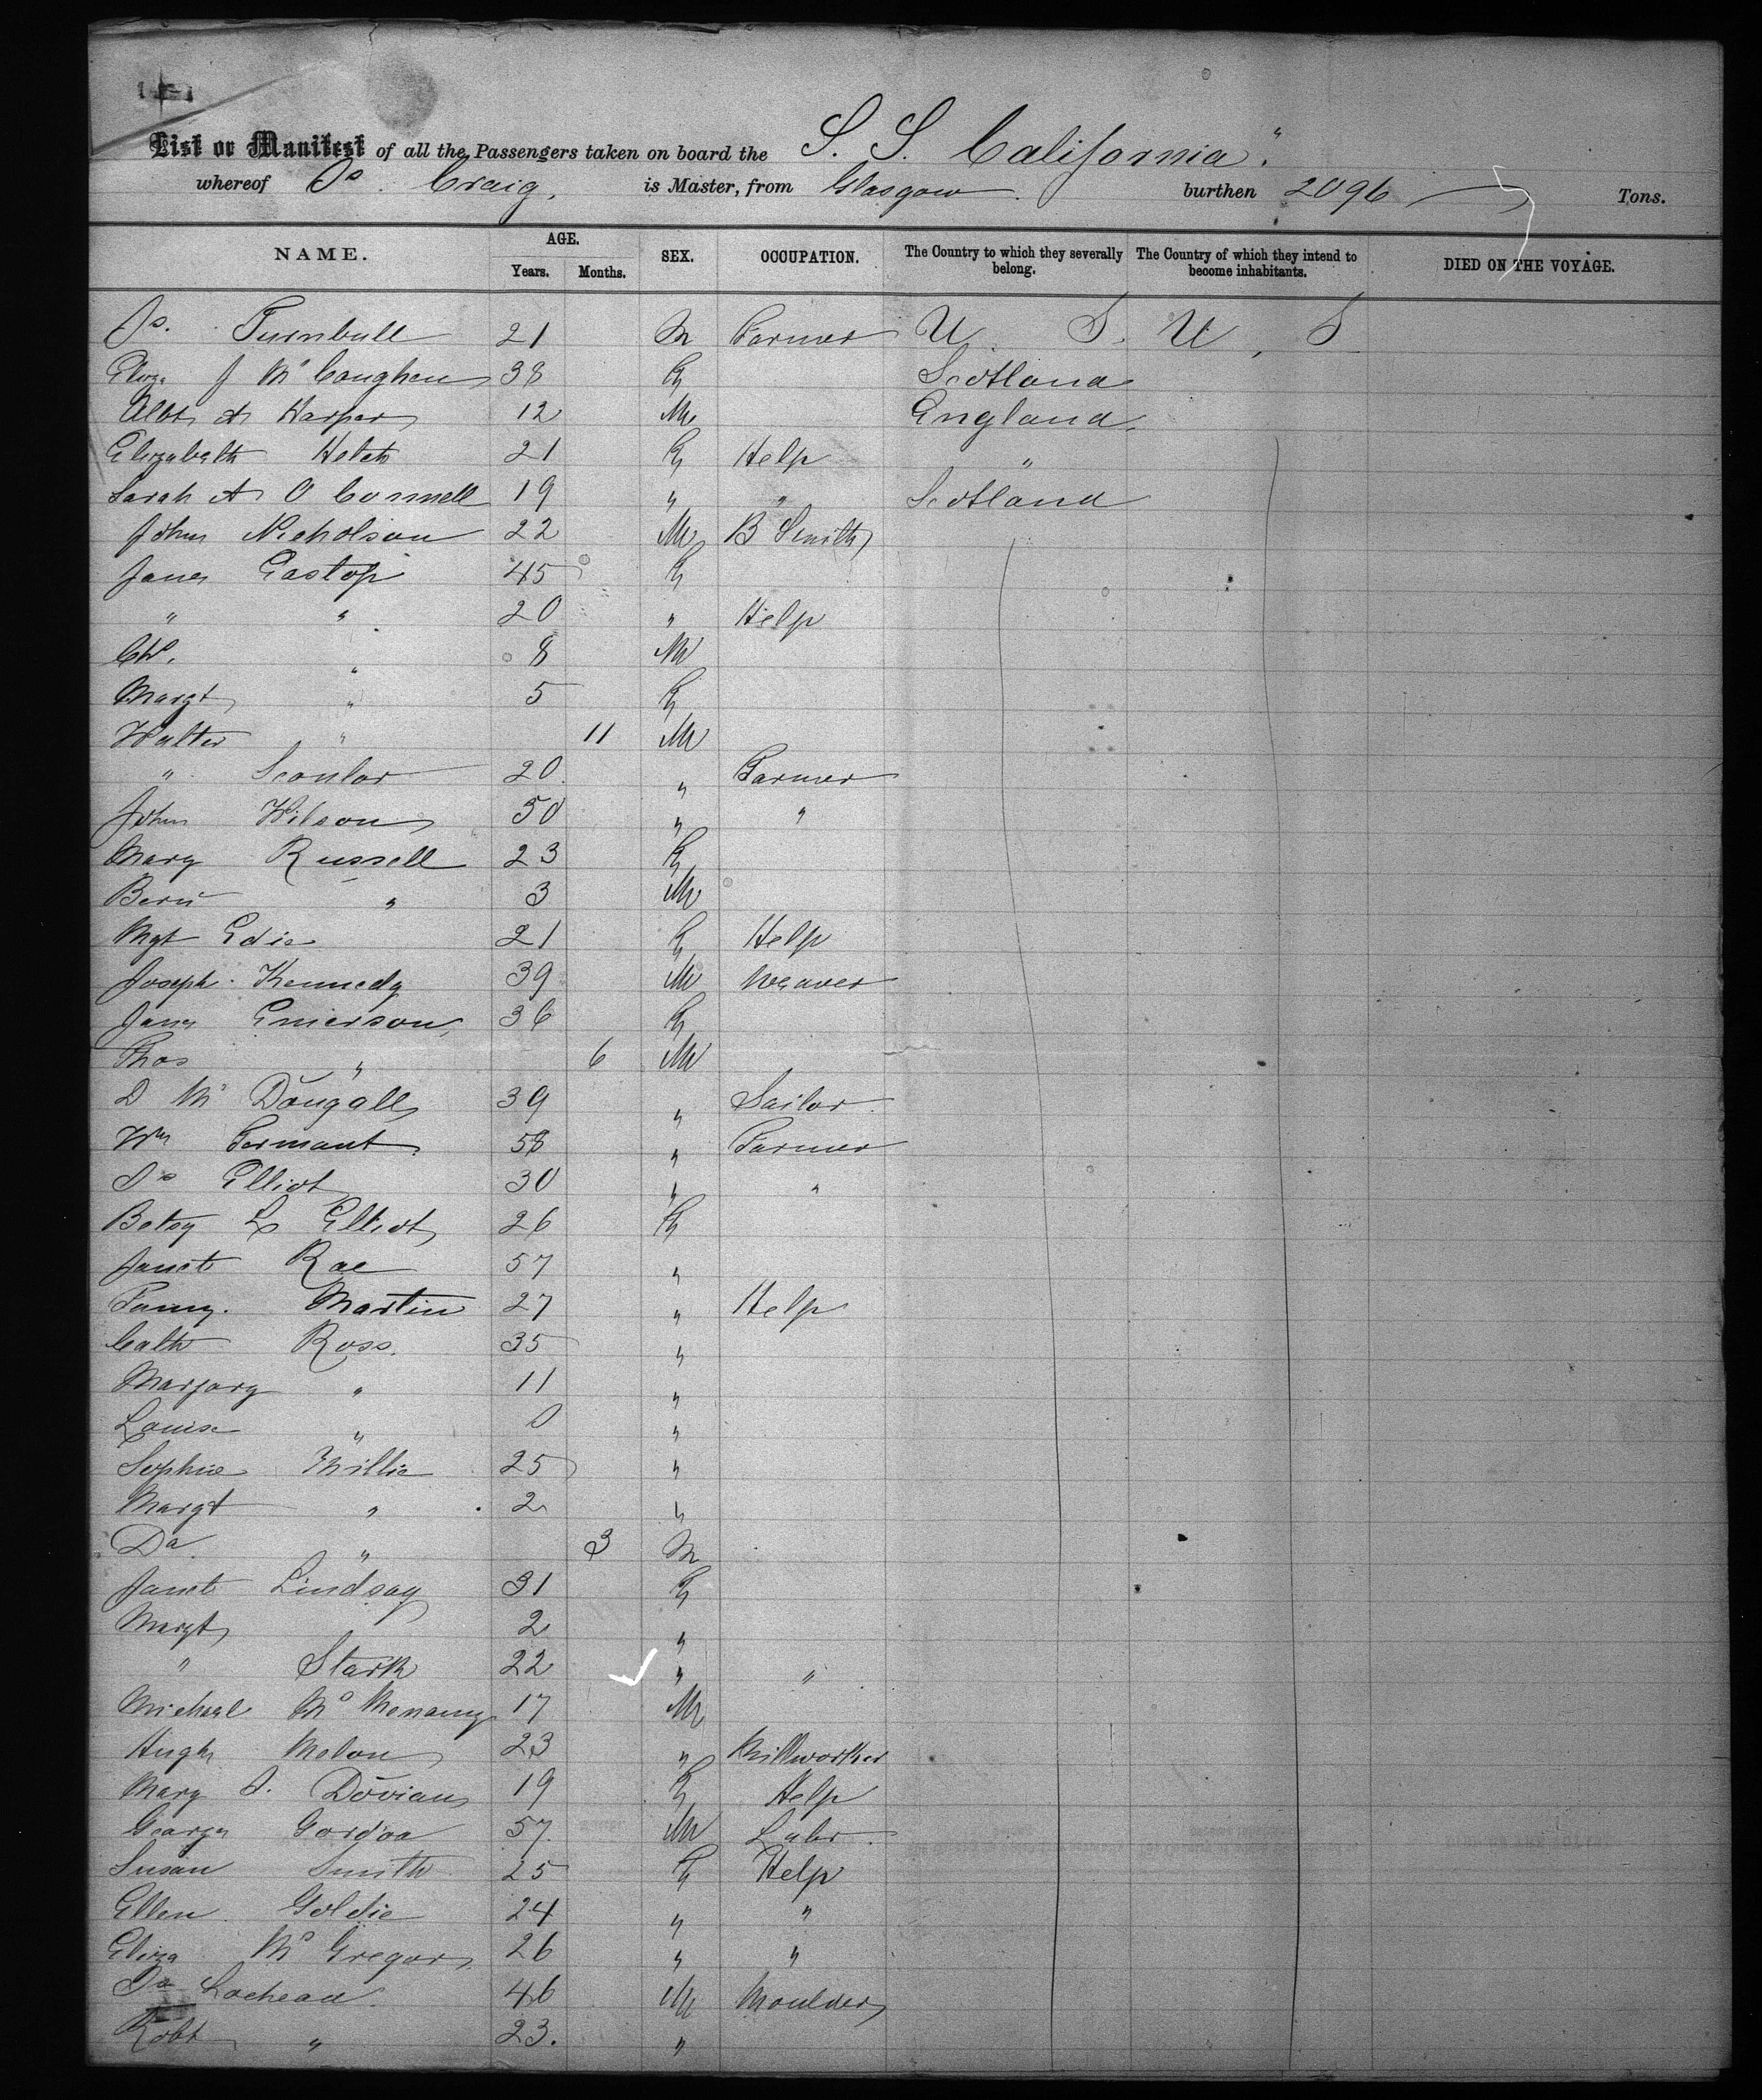 List or Manifest of all the Passengers taken on board the S. S. California "
whereof Js. Craig, is Master, from Glasgow. burthen 2096 Tons.
NAME. AGE. SEX. OCCUPATION. The Country to which they severally belong. The Country of which they intend to become inhabitants. DIED ON THE VOYAGE.
Years. Months.
Js. Turnbull 21 M Farmer U. S. U. S
Eliza J Mc Caughen 38 F Scotland
Albt A Harper 12 M England
Elizabeth 21 F Help "
Sarah A O Connell 19 " " Scotland
John Nicholson 22 M B Smith
Jane Eastop 45 F
" " 20 " Help
" 8 M
Margt " 5 F
Walter " 11 M
" Scoular 20 " Farmer
John Wilson 50 " "
Mary Russell 23 F
" 3 M
Mgt Edie 21 F Help
Joseph Kennedy 39 M Weaver
Jane Emerson 36 F
Thos " 6 M
D Mc Dougall 39 " Sailor
Wm 58 " Farmer
Js Elliot 30 " "
Betsy L Elliot 26 F
Janet Rae 57 "
Fanny. Martin 27 " Help
Cath Ross. 35 "
Marjory " 11 "
Louise " "
Sophie Millie 25 "
Margt " 2 "
Da " 3 M
Janet Lindsay 31 F
Margt 2 "
" Stark 22 " "
Michael Mc Menamy 17 M
Hugh Melon 23 " Millworker
Mary J. 19 F Help
George Gordon 57. M Labr.
Susan Smith 25 F Help
Ellen Goldie 24 " "
Eliza Mc Gregor 26 " "
Ja Lochead. 46 M Moulder
Robt " 23. "